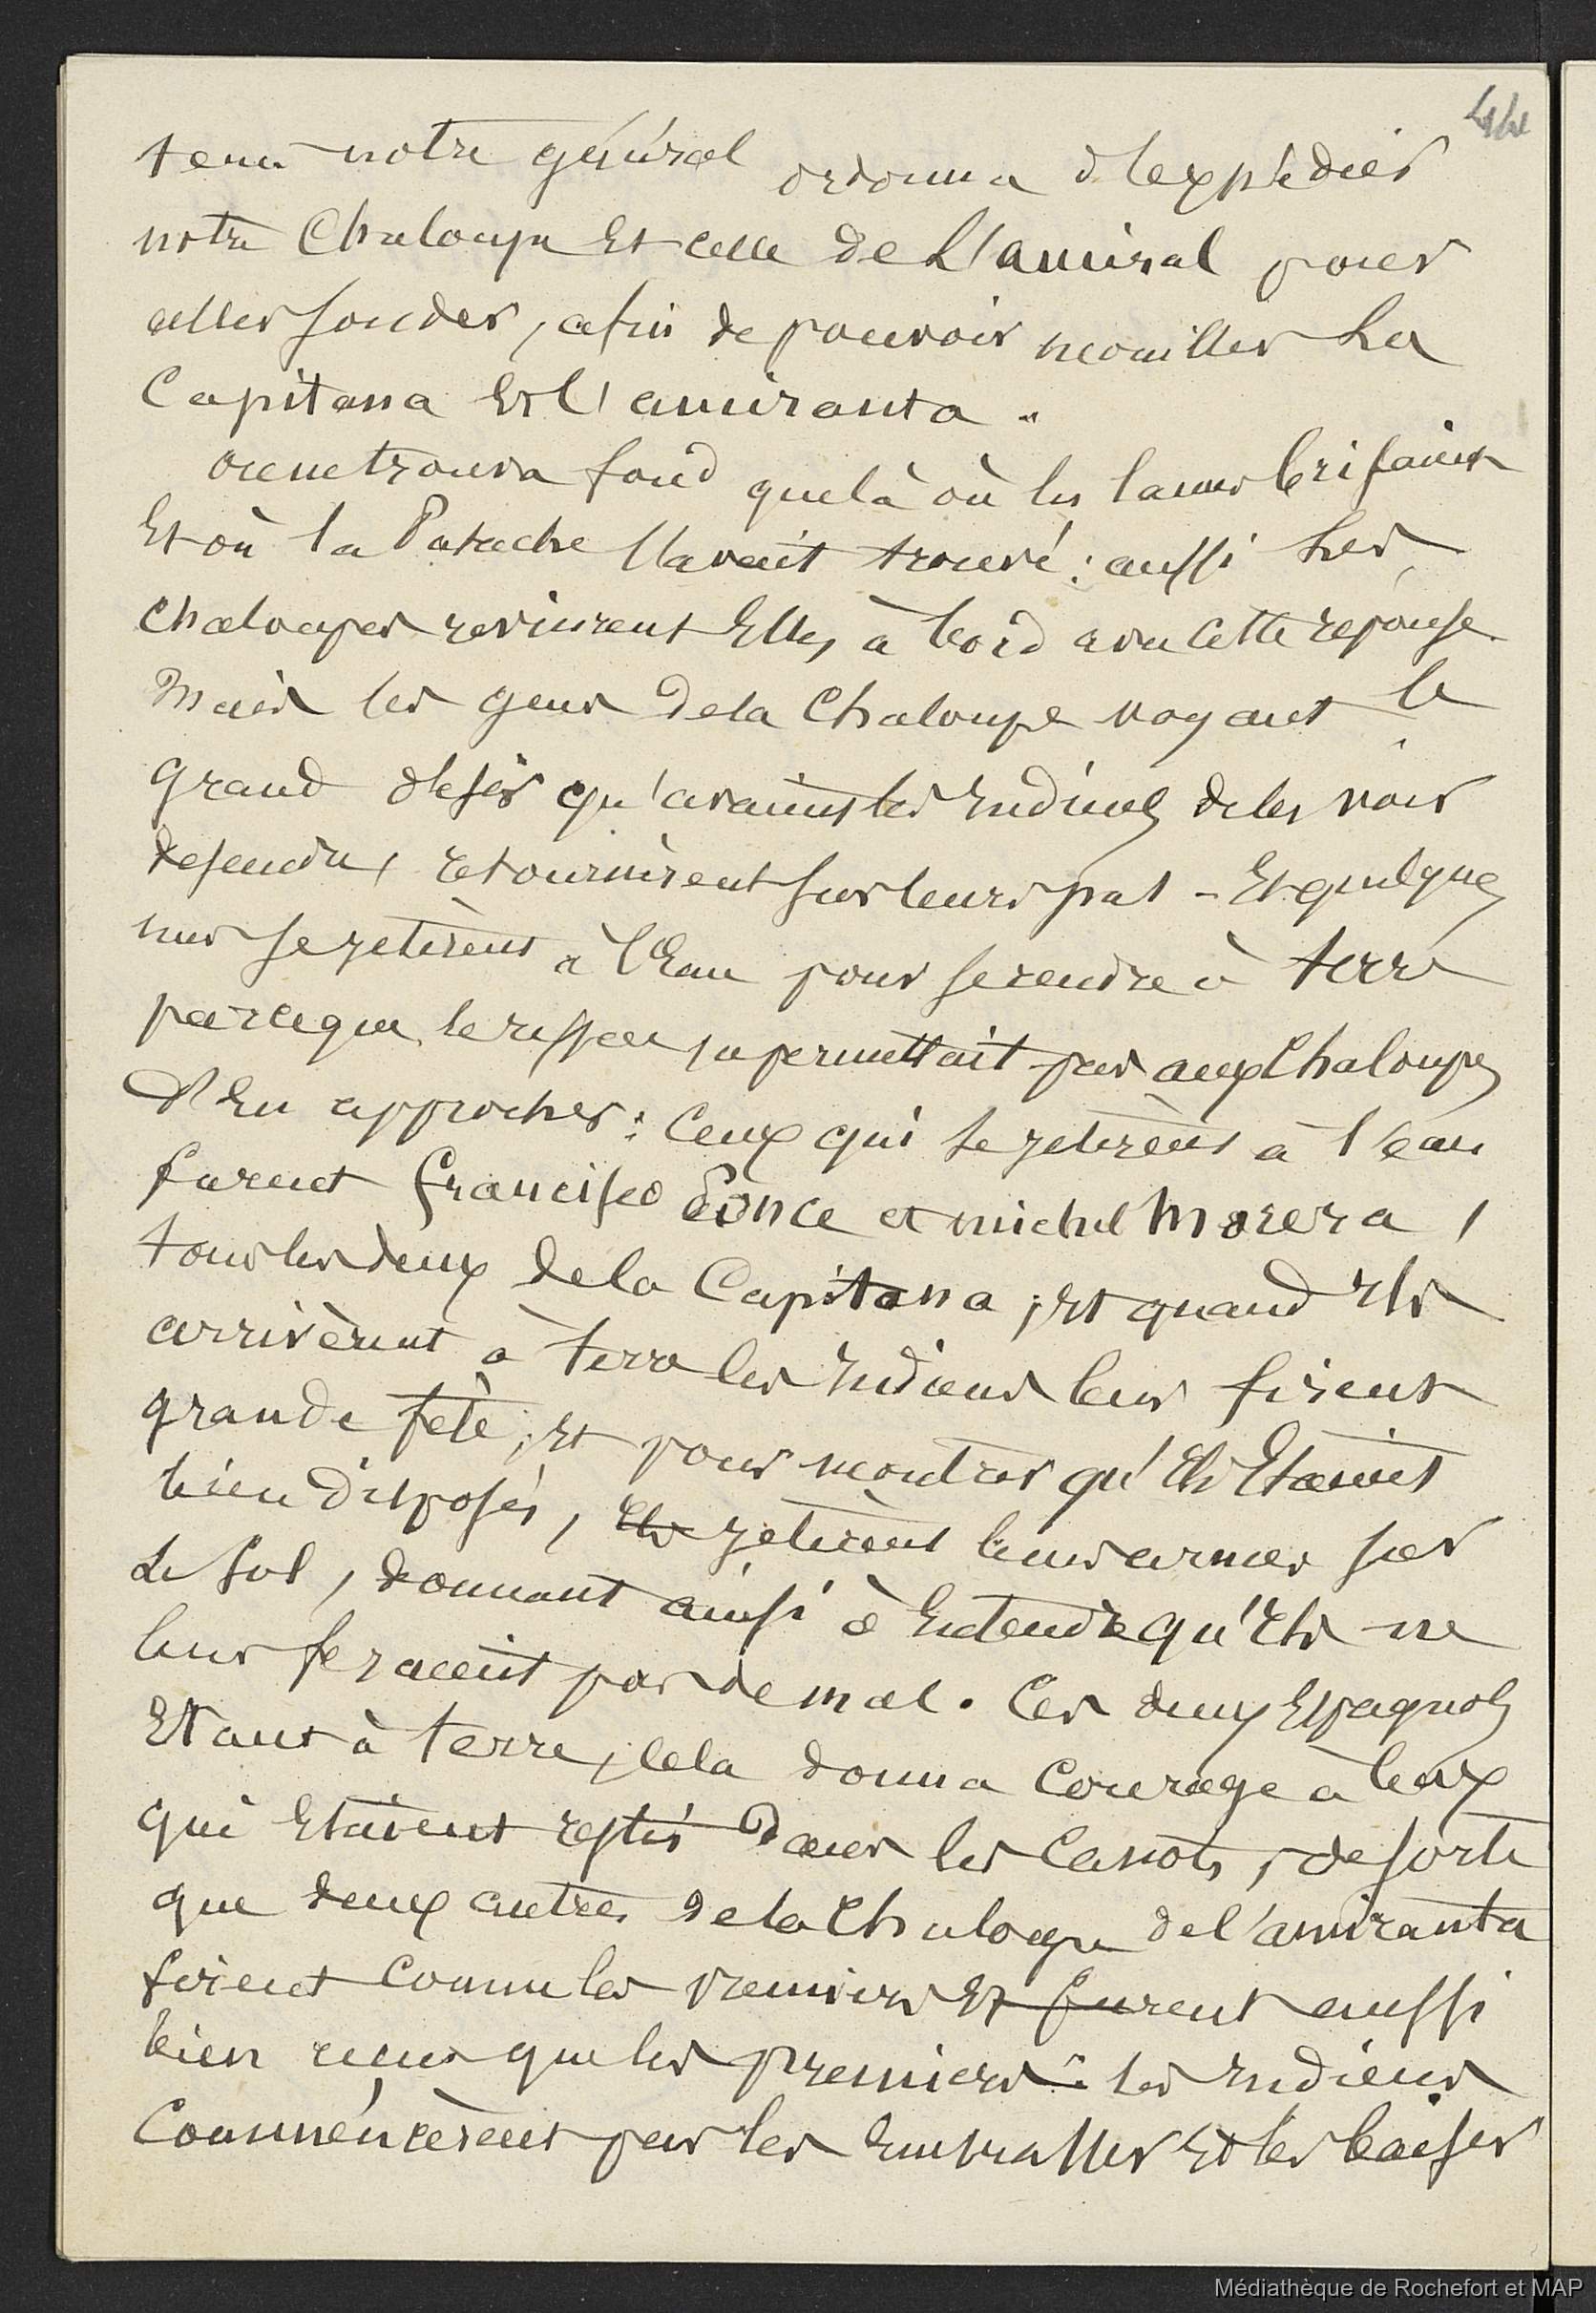 44
tenu notre général ordonna d'expédier
notre Chaloupe Et celle de L'amiral pour
aller sonder, afin de pouvoir mouiller La
Capitana Et l'amiranta.
on ne trouva fond que là où les lames brisaient
Et où la Patache l'avait trouvé : aussi Les
Chaloupes revinrent Elles à bord avec cette réponse.
Mais les gens de la Chaloupe voyant le
grand désir qu'avaient les Indiens de les voir
descendre, retournèrent sur leurs pas - Et quelques
uns se jetèrent à l'Eau pour se rendre à terre
parceque le ressac ne permettait pas aux Chaloupes
d'En approcher : Ceux qui se jetèrent à l'eau
furent francisco Ponce et michel Morera,
tous les deux de la Capitana ; Et quand Ils
arrivèrent à terre les Indiens leur firent
grande fête ; Et pour montrer qu'Ils Etaient
bien disposés, Ils jetèrent leurs armes sur
Le sol, donnant ainsi à Entendre qu'Ils ne
leur feraient pas de mal. Ces deux Espagnols
Etant à terre, Cela donna Courage à Ceux
qui Etaient restés Dans les Canots, de sorte
que deux autres de la Chaloupe de l'amiranta
firent comme les premiers Et furent aussi
bien reçus que les premiers : les Indiens
Commencèrent par les Embrasser Et les baiser
Médiathèque de Rochefort et MAP